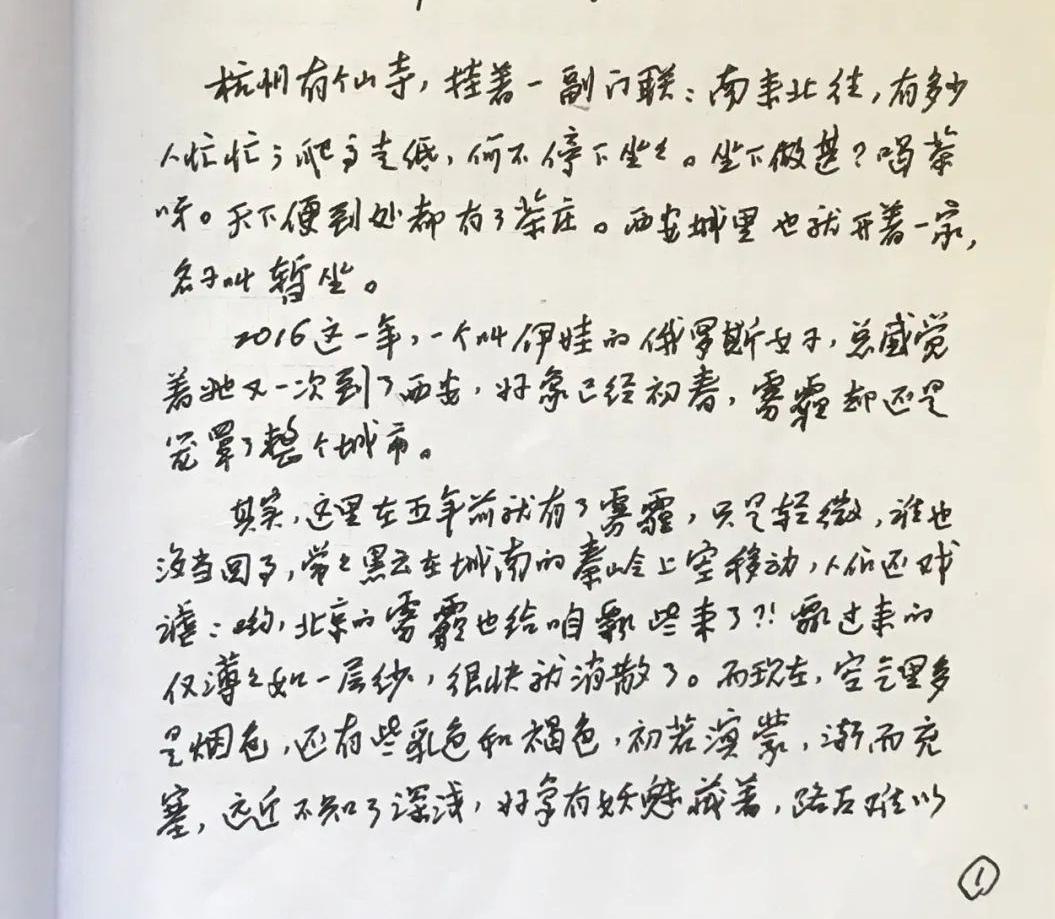 杭州有个山寺，挂着一副门联：南来北往，有多少
人忙忙；爬高走低，何不停下坐坐。坐下做甚？喝茶
呀。天下便到处都有了茶庄。西安城里也就开着一家，
名子叫暂坐。
2016这一年，一个叫伊娃的俄罗斯女子，总感觉
着她又一次到了西安，好象已经初春，雾霾却还是
笼罩了整个城市。
其实，这里在五年前就有了雾霾，只是轻微，谁也
没当回事，常常黑云在城南的秦岭上空移动，人们还戏
谑：哟，北京的雾霾也给咱飘些来了？！飘过来的
仅薄薄如一层纱，很快就消散了。而现在，空气里多
是烟色，还有些乳色和褐色，初若溟蒙，渐而充
塞，远近不知了深浅，好象有妖魅藏着，路石难以
1